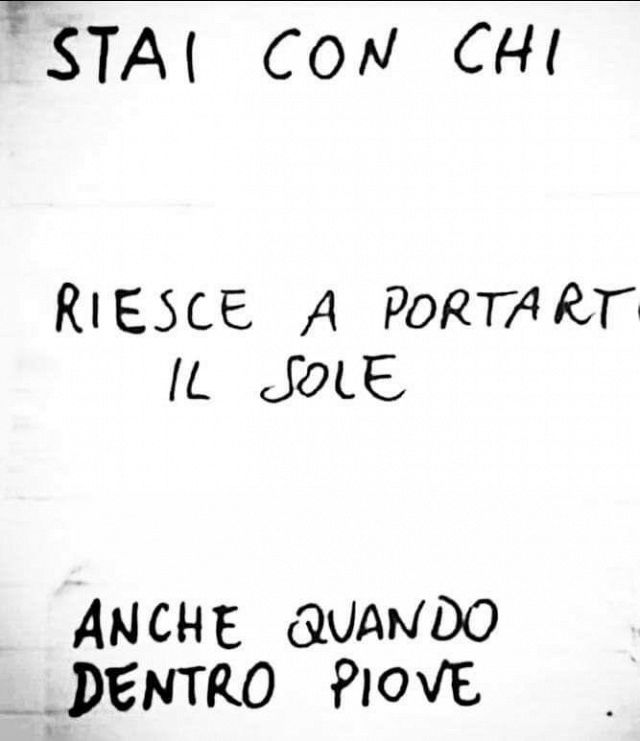 STAI CON CHI
RIESCE A PORTART
IL SOLE
ANCHE QUANDO
DENTRO PIOVE